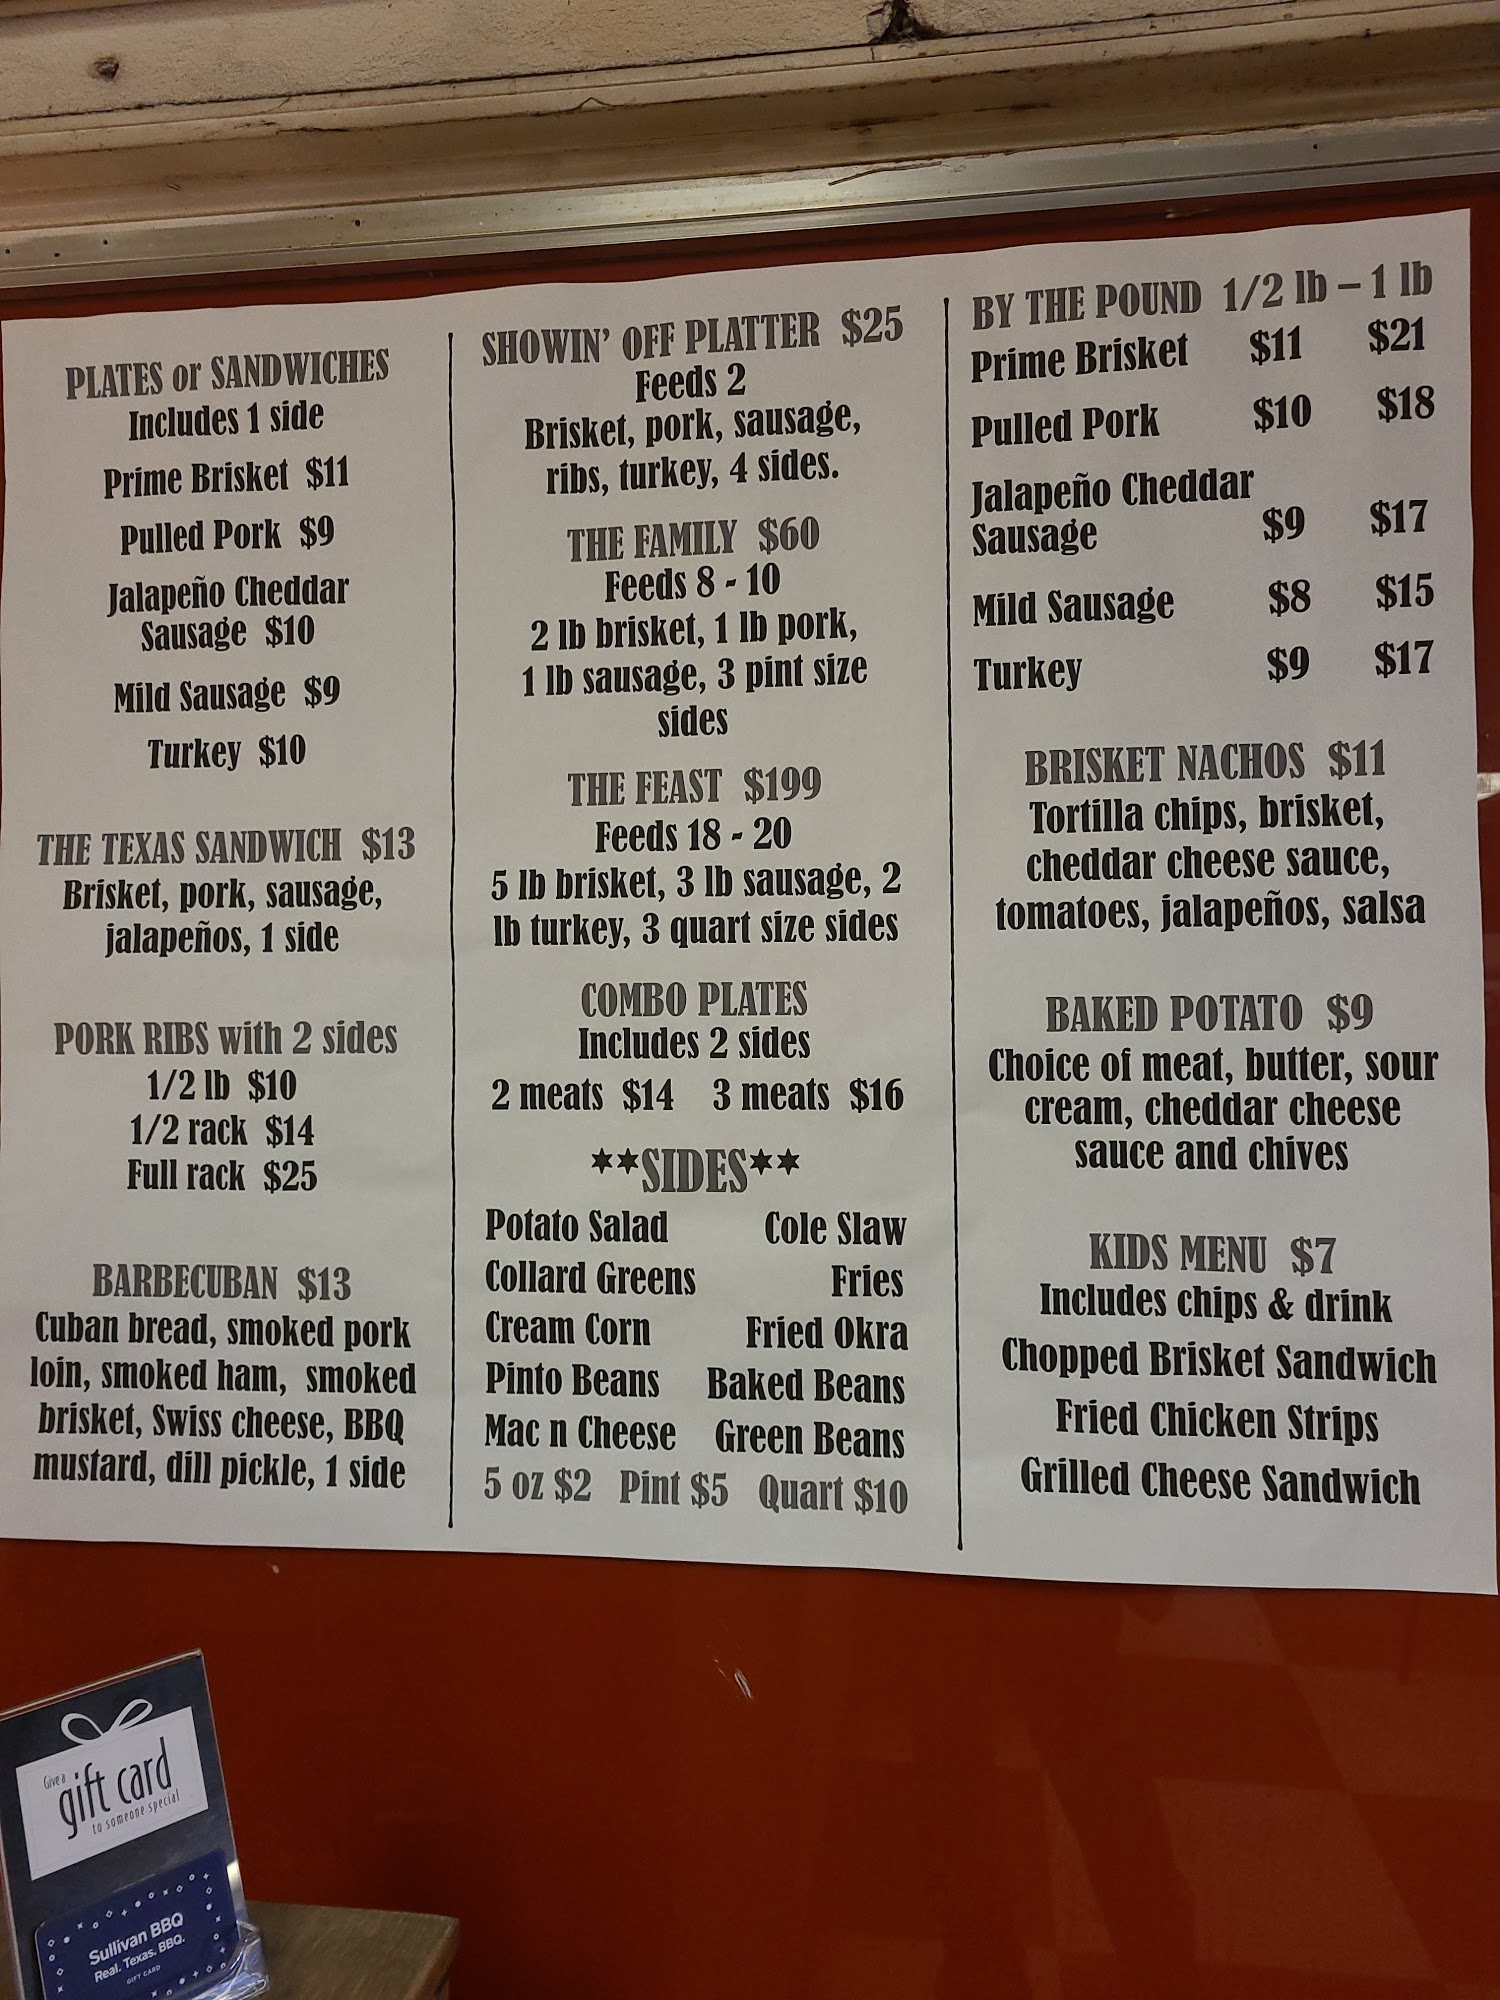 PLATES or SANDWICHES
Includes 1 side
Prime Brisket $11
Pulled Pork $9
Jalapeño Cheddar
Sausage $10
Mild Sausage $9
Turkey $10
THE TEXAS SANDWICH $13
Brisket, pork, sausage,
jalapeños, 1 side
PORK RIBS with 2 sides
1/2 lb $10
1/2 rack $14
Full rack $25
BARBECUBAN $13
Cuban bread, smoked pork
loin, smoked ham, smoked
brisket, Swiss cheese, BBQ
mustard, dill pickle, 1 side
SHOWIN' OFF PLATTER $25
Feeds 2
Brisket, pork, sausage,
ribs, turkey, 4 sides.
THE FAMILY $60
Feeds 8 - 10
2 lb brisket, 1 lb pork,
1 lb sausage, 3 pint size
sides
THE FEAST $199
Feeds 18 - 20
5 lb brisket, 3 lb sausage, 2
lb turkey, 3 quart size sides
COMBO PLATES
Includes 2 sides
2 meats $14 3 meats $16
**SIDES**
Potato Salad Cole Slaw
Collard Greens Fries
Cream Corn Fried Okra
Pinto Beans Baked Beans
Mac n Cheese Green Beans
5 oz $2 Pint $5 Quart $10
BY THE POUND 1/2 lb – 1 lb
Prime Brisket $11 $21
Pulled Pork $10 $18
Jalapeño Cheddar
Sausage $9 $17
Mild Sausage $8 $15
Turkey $9 $17
BRISKET NACHOS $11
Tortilla chips, brisket,
cheddar cheese sauce,
tomatoes, jalapeños, salsa
BAKED POTATO $9
Choice of meat, butter, sour
cream, cheddar cheese
sauce and chives
KIDS MENU $7
Includes chips & drink
Chopped Brisket Sandwich
Fried Chicken Strips
Grilled Cheese Sandwich
Give a
gift card
to someone special
Sullivan BBQ
Real. Texas. BBQ.
GIFT CARD